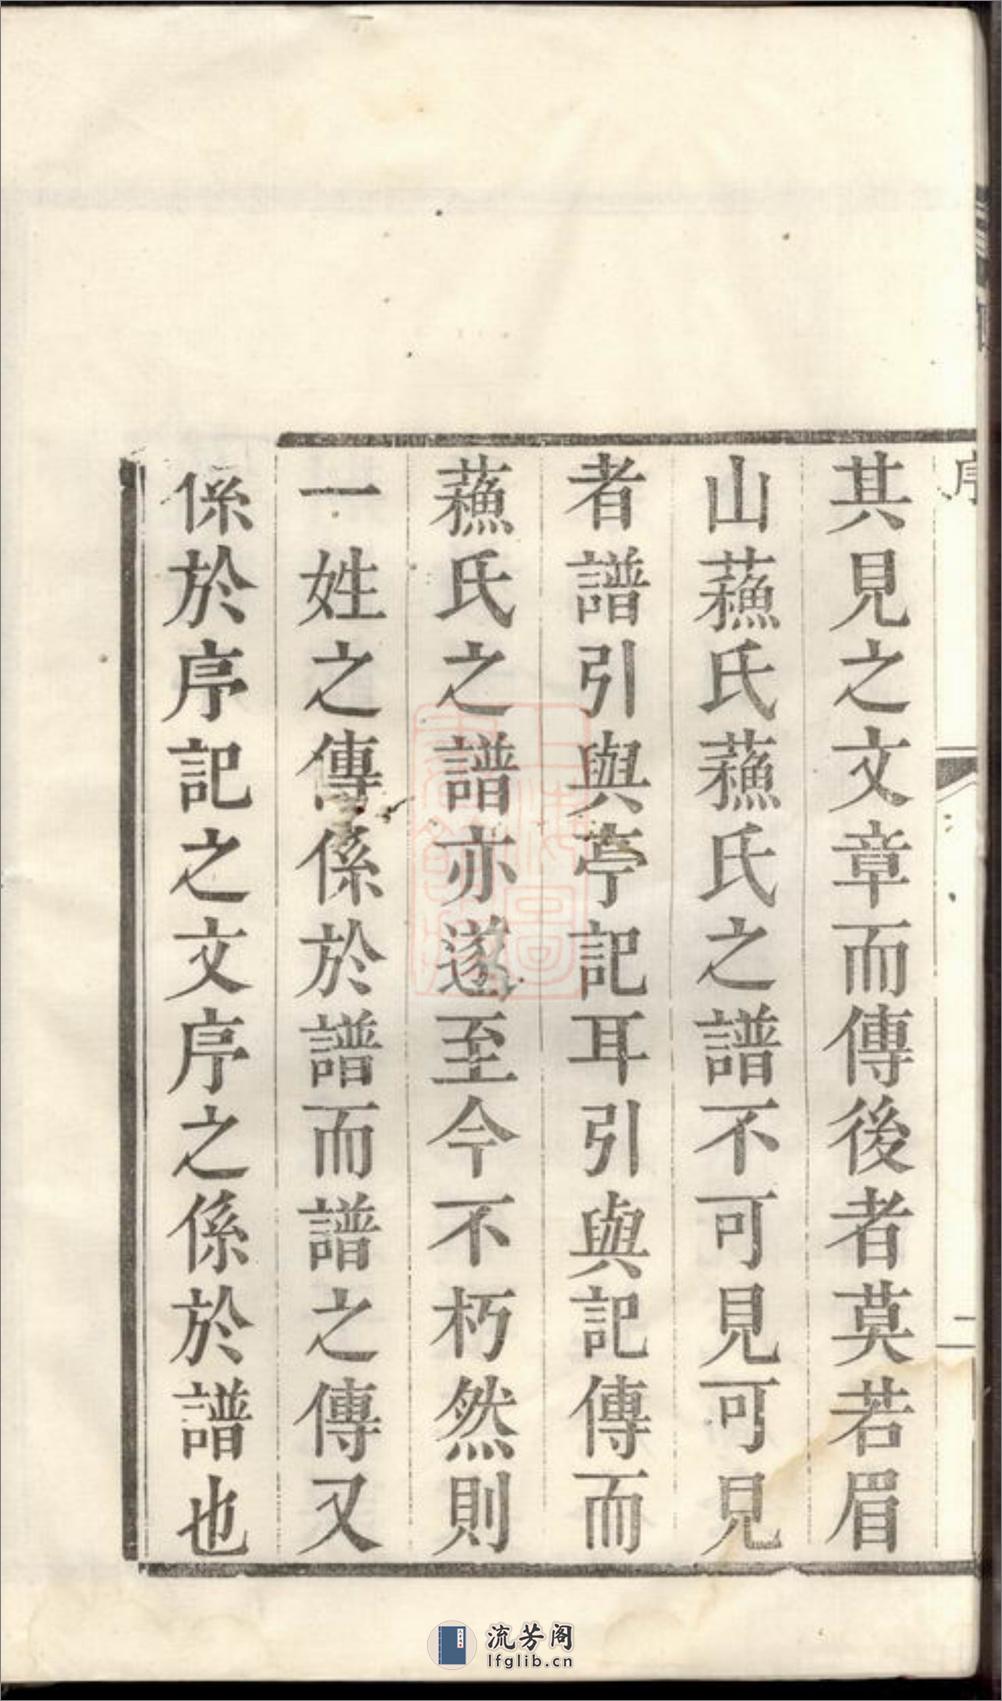 序
二
其見之文章而傳後者莫若眉
山蘓氏蘓氏之譜不可見可見
者譜引與亭記耳引與記傳而
蘓氏之譜亦遂至今不朽然則
一姓之傳係於譜而譜之傳又
係於序記之文序之係於譜也
流芳阁
lfglib.cn